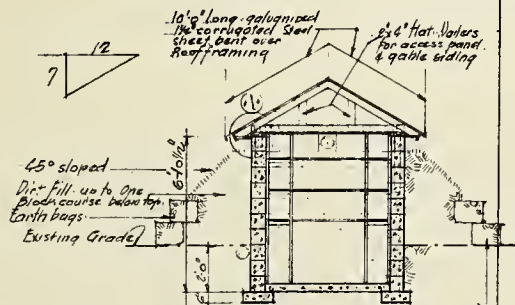 10'0" long galvanized
1¼" corrugated Steel
sheet bent over
Roof framing
2"x4" flat Nailers
for access panel
& gable siding
12
7
45° sloped
Dirt fill up to One
Block course below top.
Earth bags
Existing Grade
2'0"